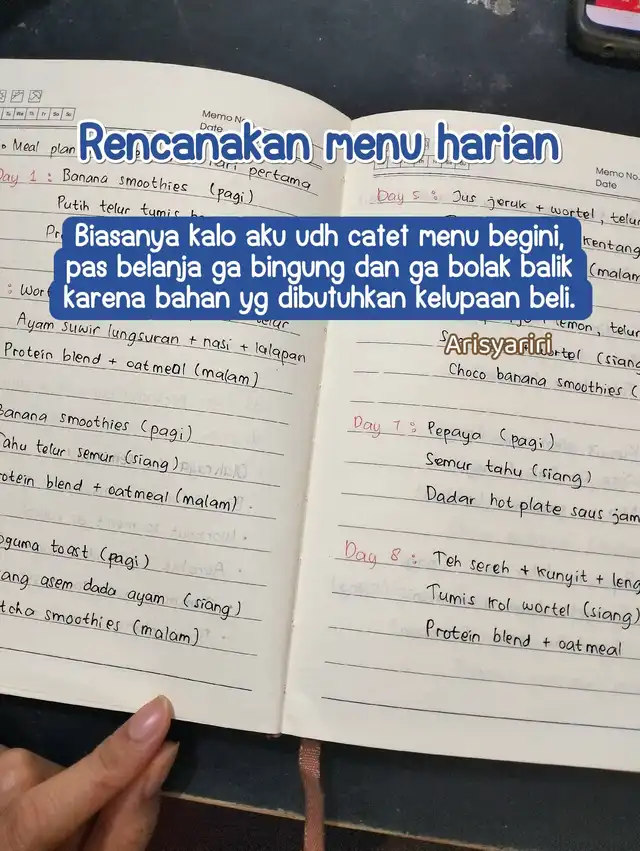 Tu We Th Fr Sa Su
Memo No.
Date
Rencanakan menu harian
• Meal plan
pertama
Day 1 : Banana smoothies (pagi)
Putih telur tumis
Biasanya kalo aku udh catet menu begini,
pas belanja ga bingung dan ga bolak balik
karena bahan yg dibutuhkan kelupaan beli.
Ayam suwir lungsuran + nasi + lalapan
Protein blend + oatmeal (malam)
Banana smoothies (pagi)
Tahu telur semur (siang)
Protein blend + oatmeal (malam).
toast (pagi)
asem dada ayam (siang)
smoothies (malam)
Memo No.
Date
Day 5 : Jus jeruk + wortel, telur
kentang
(malam
telur
Arisyariri
(siang
Choco banana smoothies (
Day 7 : Pepaya (pagi)
Semur tahu (siang)
Dadar hot plate saus jam
Day 8 : Teh sereh + kunyit + leng
Tumis kol wortel (siang)
Protein blend + oatmeal